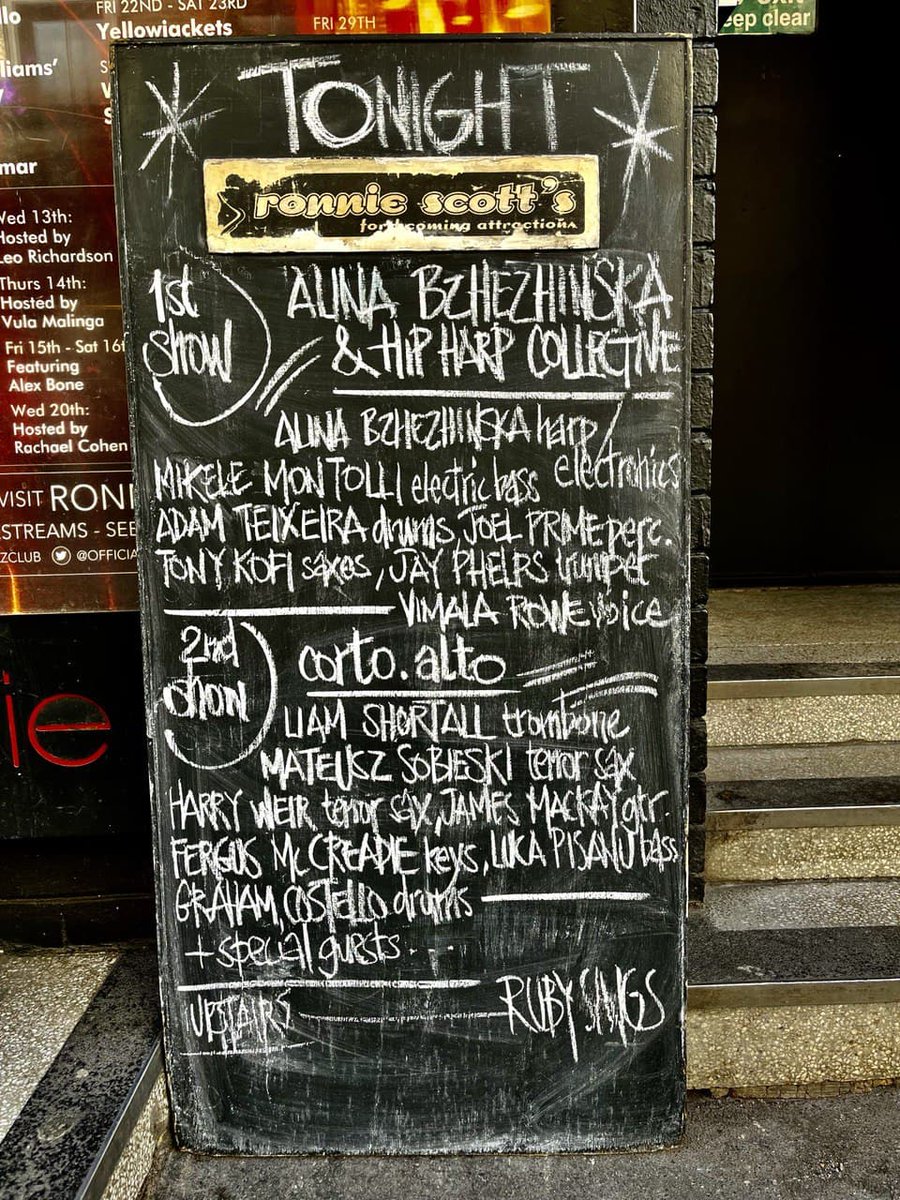 FRI 22ND - SAT 23RD
Yellowjackets
FRI 29TH
eep clear
liams'
mar
Wed 13th:
Hosted by
Leo Richardson
Thurs 14th:
Hosted by
Vula Malinga
Fri 15th - Sat 16t
Featuring
Alex Bone
Wed 20th:
Hosted by
Rachael Cohen
VISIT RONI
STREAMS - SEE
ZCLUB @OFFICIA
ie
TONIGHT
ronnie scott's
forthcoming attractions
1st SHOW
ALINA BZHEZHINSKA
& HIP HARP COLLECTIVE
ALINA BZHEZHINSKA harp/
electronics
MIKELE MONTOLLI electric bass
ADAM TEIXEIRA drums, JOEL PRIME perc.
TONY KOFI saxes, JAY PHELPS trumpet
VIMALA ROWE voice
2nd show
corto.alto
LIAM SHORTALL trombone
MATEUSZ SOBIESKI tenor sax
HARRY WEIR tenor sax, JAMES MACKAY gtr.
FERGUS McCREADIE keys, LUKA PISANU bass
GRAHAM COSTELLO drums
+ special guests...
UPSTAIRS RUBY SINGS